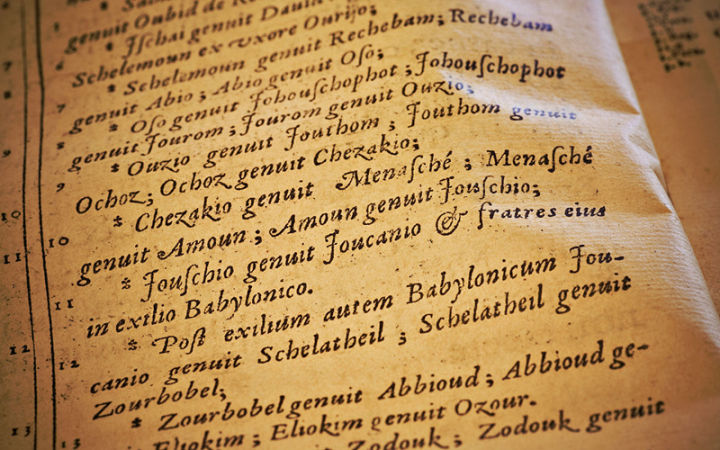 genuit Oubid de
* Jſchai genuit Dauid
Schelemoun ex vxore Ourijo;
* Schelemoun genuit Rechebam; Rechebam
7 7 genuit Abio; Abio genuit Oſo;
8 * Oſo genuit Johouſchophot; Johouſchophot
genuit Jourom; Jourom genuit Ouzio;
9 9 * Ouzio genuit Jouthom; Jouthom genuit
Ochoz; Ochoz genuit Chezakio;
10 10 * Chezakio genuit Menaſché; Menaſché
genuit Amoun; Amoun genuit Jouſchio;
11 11 * Jouſchio genuit Joucanio & fratres eius
in exilio Babylonico.
12 12 * Poſt exilium autem Babylonicum Jou-
canio genuit Schelatheil; Schelatheil genuit
Zourbobel;
13 13 * Zourbobel genuit Abbioud; Abbioud ge-
Eliokim; Eliokim genuit Ozour.
Zodouk; Zodouk genuit